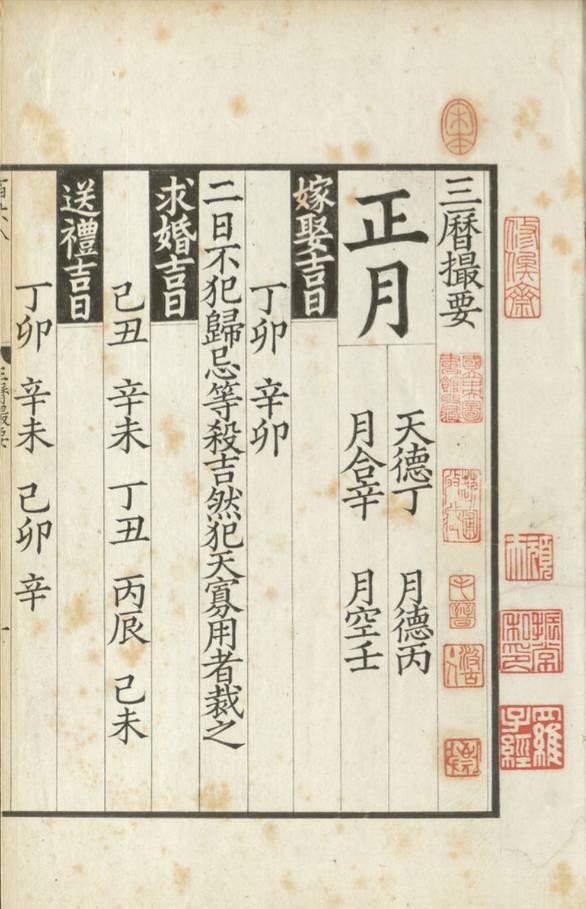 三曆撮要
正月
天德丁 月德丙
月合辛 月空壬
嫁娶吉日
丁卯 辛卯
二日不犯歸忌等殺吉然犯天寡用者裁之
求婚吉日
己丑 辛未 丁丑 丙辰 己未
送禮吉日
丁卯 辛未 己卯 辛
三曆撮要
一